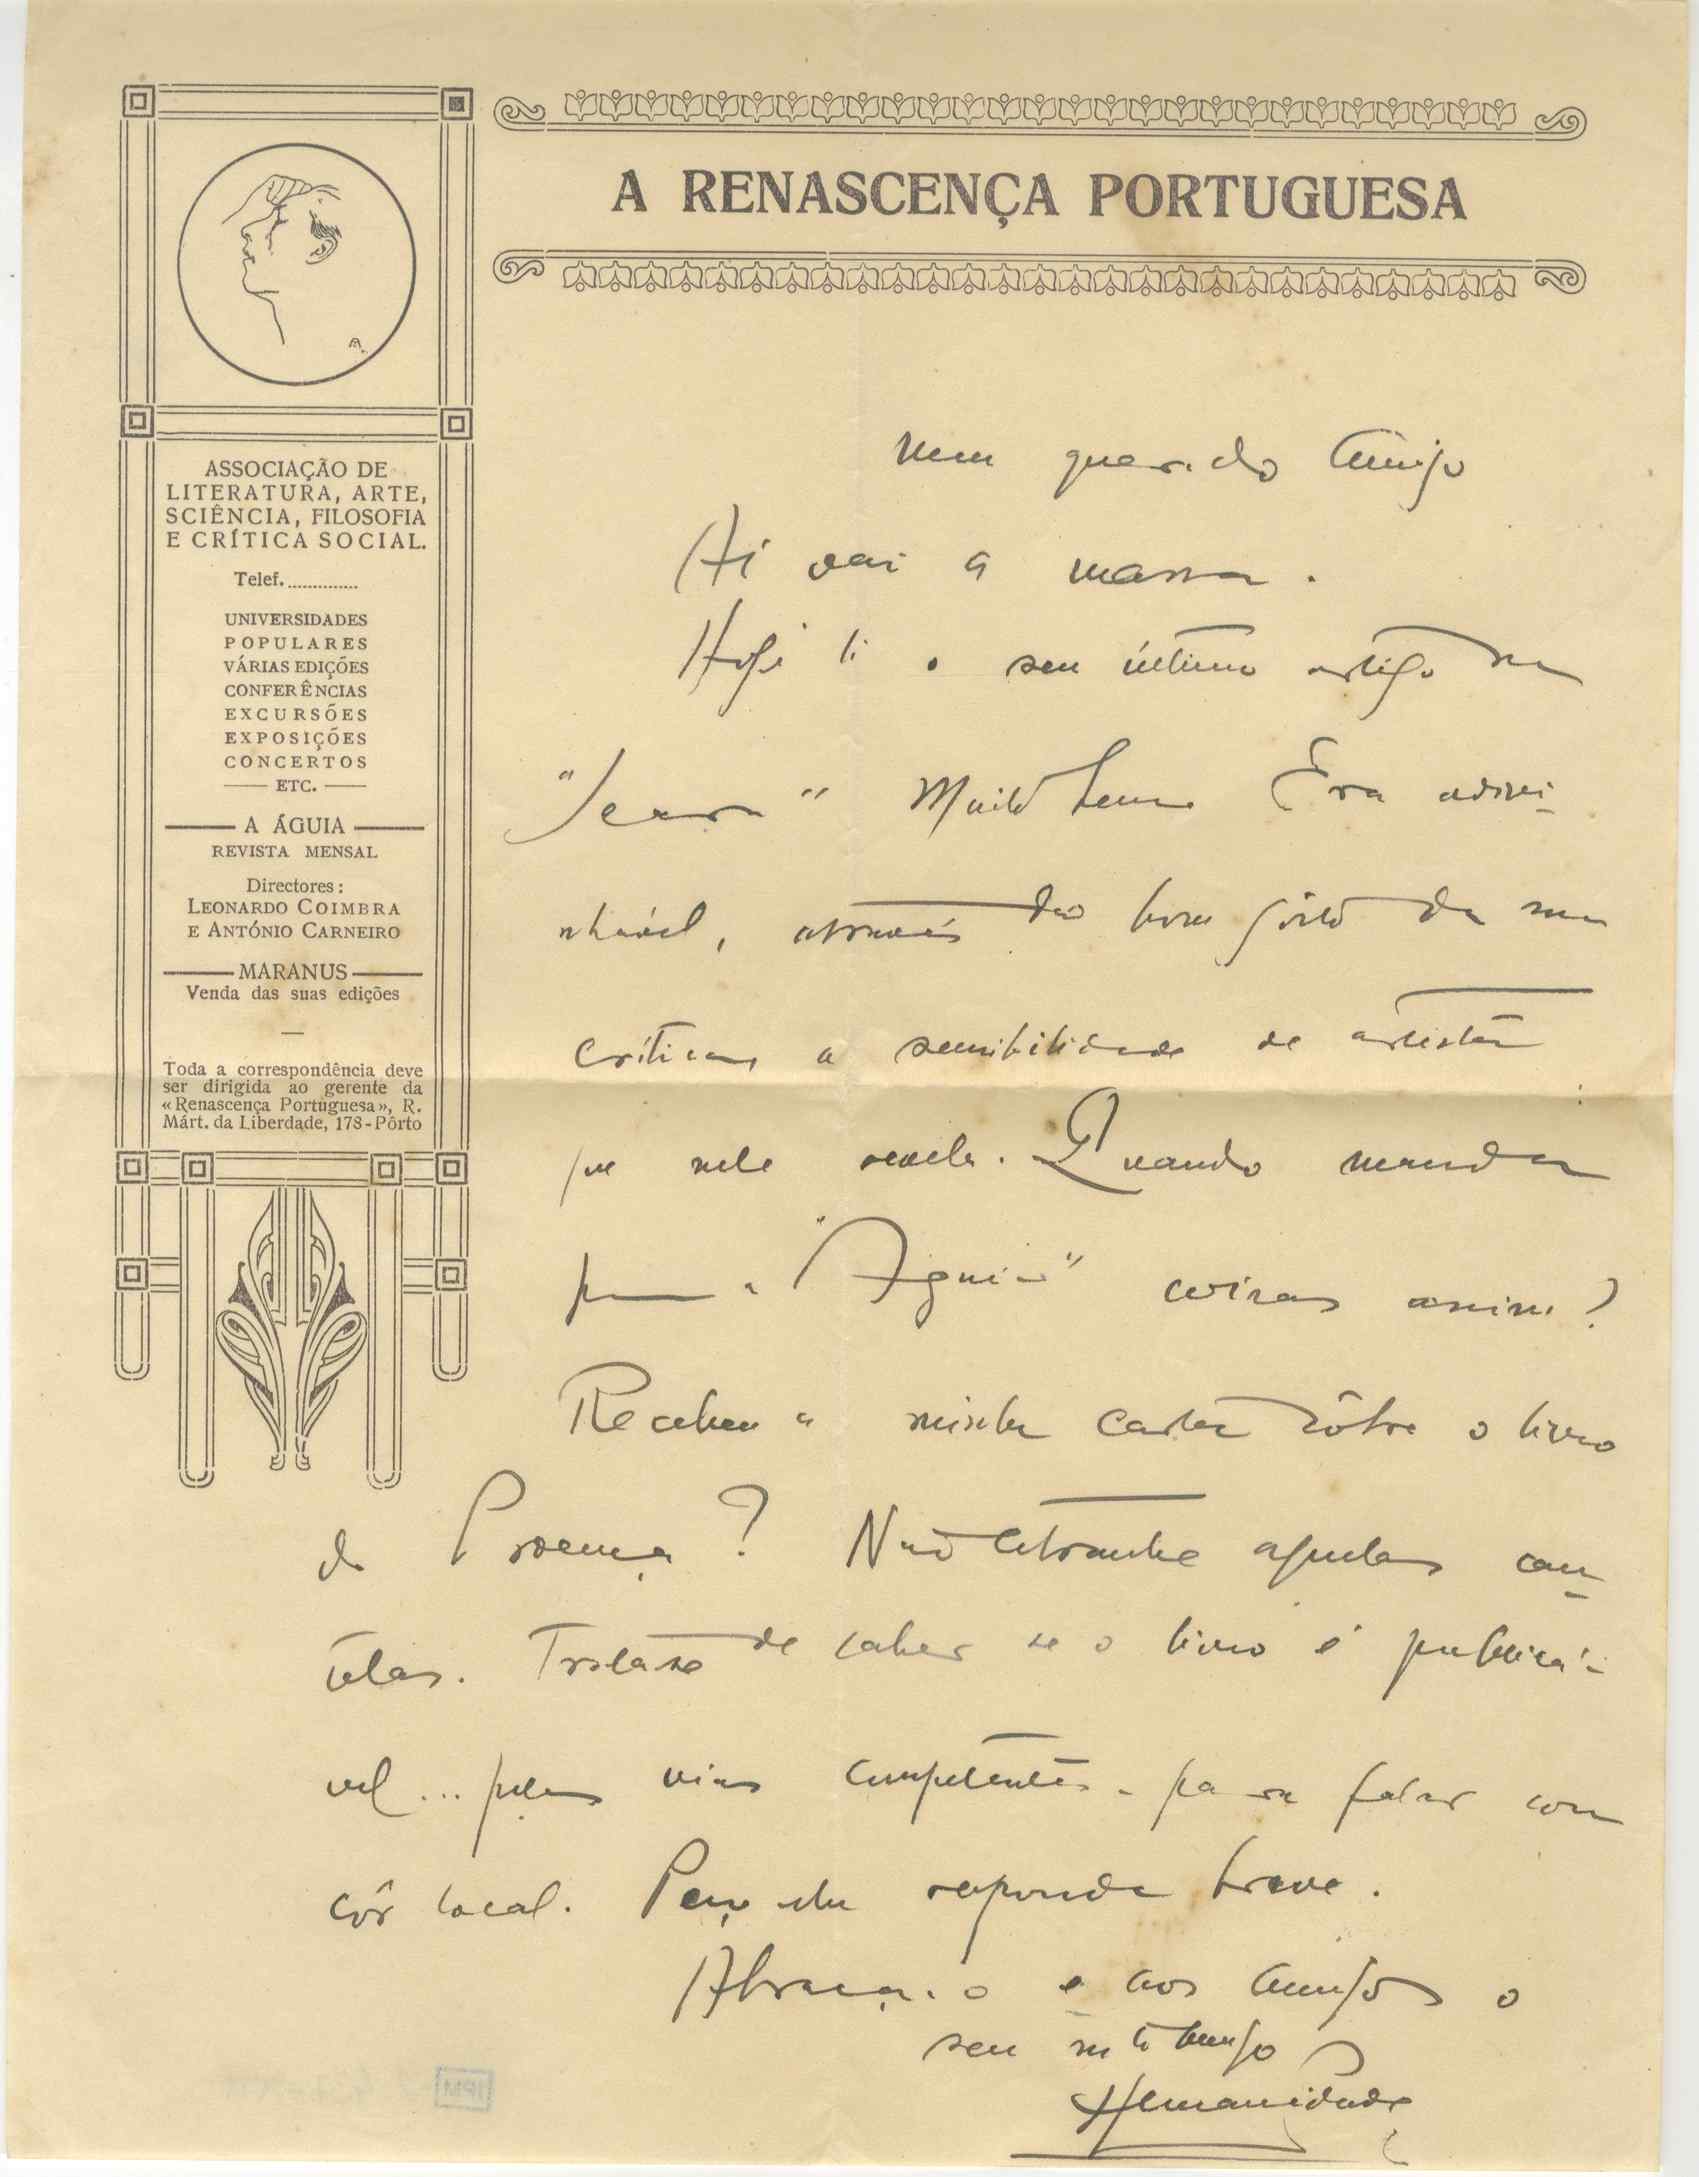 A RENASCENÇA PORTUGUESA
ASSOCIAÇÃO DE
LITERATURA, ARTE,
SCIÊNCIA, FILOSOFIA
E CRÍTICA SOCIAL.
Telef. ..............
UNIVERSIDADES
POPULARES
VÁRIAS EDIÇÕES
CONFERÊNCIAS
EXCURSÕES
EXPOSIÇÕES
CONCERTOS
ETC.
A ÁGUIA
REVISTA MENSAL
Directores:
LEONARDO COIMBRA
E ANTÓNIO CARNEIRO
MARANUS
Venda das suas edições
Toda a correspondência deve
ser dirigida ao gerente da
«Renascença Portuguesa», R.
Márt. da Liberdade, 178-Pôrto
Meu querido Amigo
Aí vai a massa.
Hoje li o seu último artigo na
"Seara" Muito bem. Era adivi-
nhável, através do bom gôsto da sua
crítica, a sensibilidade de artista
que nele revela. Quando manda
para a "Aguia" coisas assim?
Recebeu a minha carta sôbre o livro
do Proença? Não estranhe aquelas cau-
telas. Trata-se de saber se o livro é publicá-
vel... pelas vias competentes - para falar com
côr local. Peço-lhe responda breve.
Abraça-o e aos Amigos o
seu mto amigo